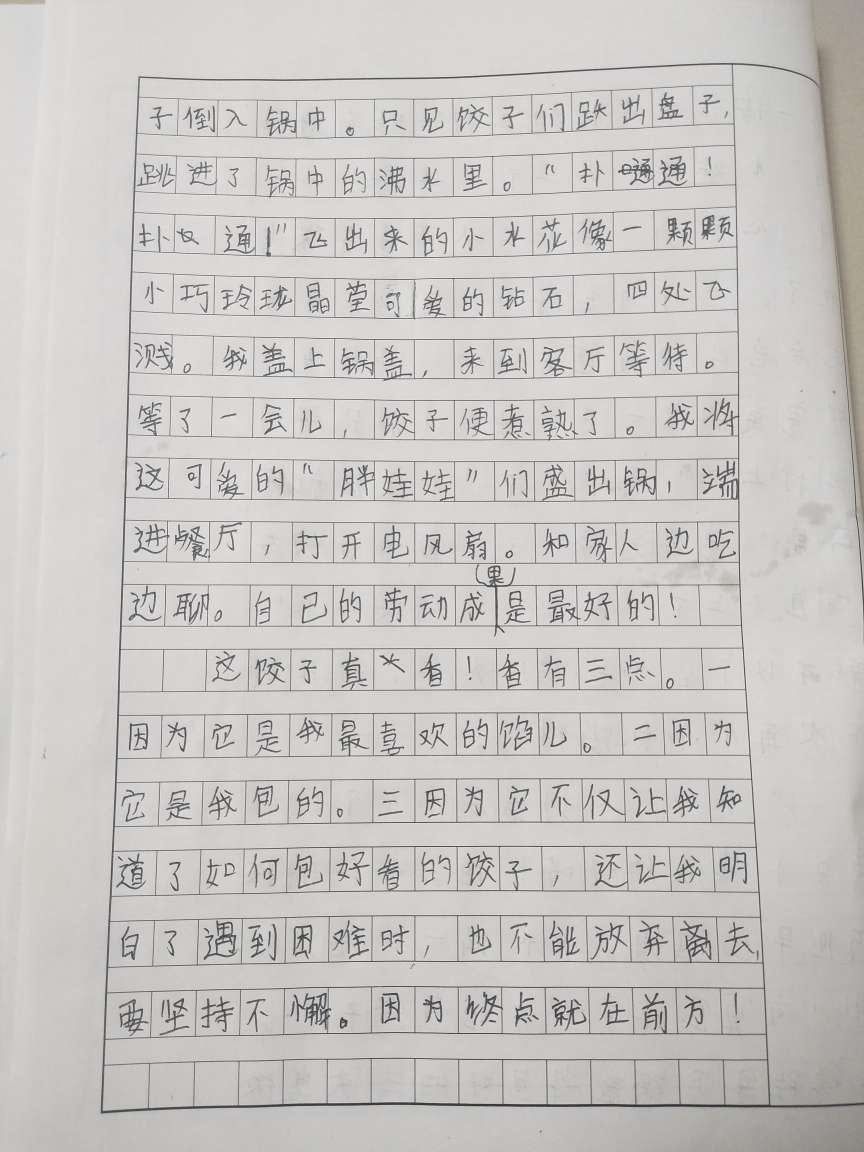 子倒入锅中。只见饺子们跌出盘子，
跳进了锅中的沸水里。“扑通！
扑通！”飞出来的小水花像一颗颗
小巧玲珑晶莹可爱的钻石，四处飞
溅。我盖上锅盖，来到客厅等待。
等了一会儿，饺子便煮熟了。我将
这可爱的“胖娃娃”们盛出锅，端
进餐厅，打开电风扇。和家人边吃
边聊。自己的劳动成果是最好的！
这饺子真香！香有三点。一
因为它是我最喜欢的馅儿。二因为
它是我包的。三因为它不仅让我知
道了如何包好看的饺子，还让我明
白了遇到困难时，也不能放弃离去，
要坚持不懈。因为终点就在前方！